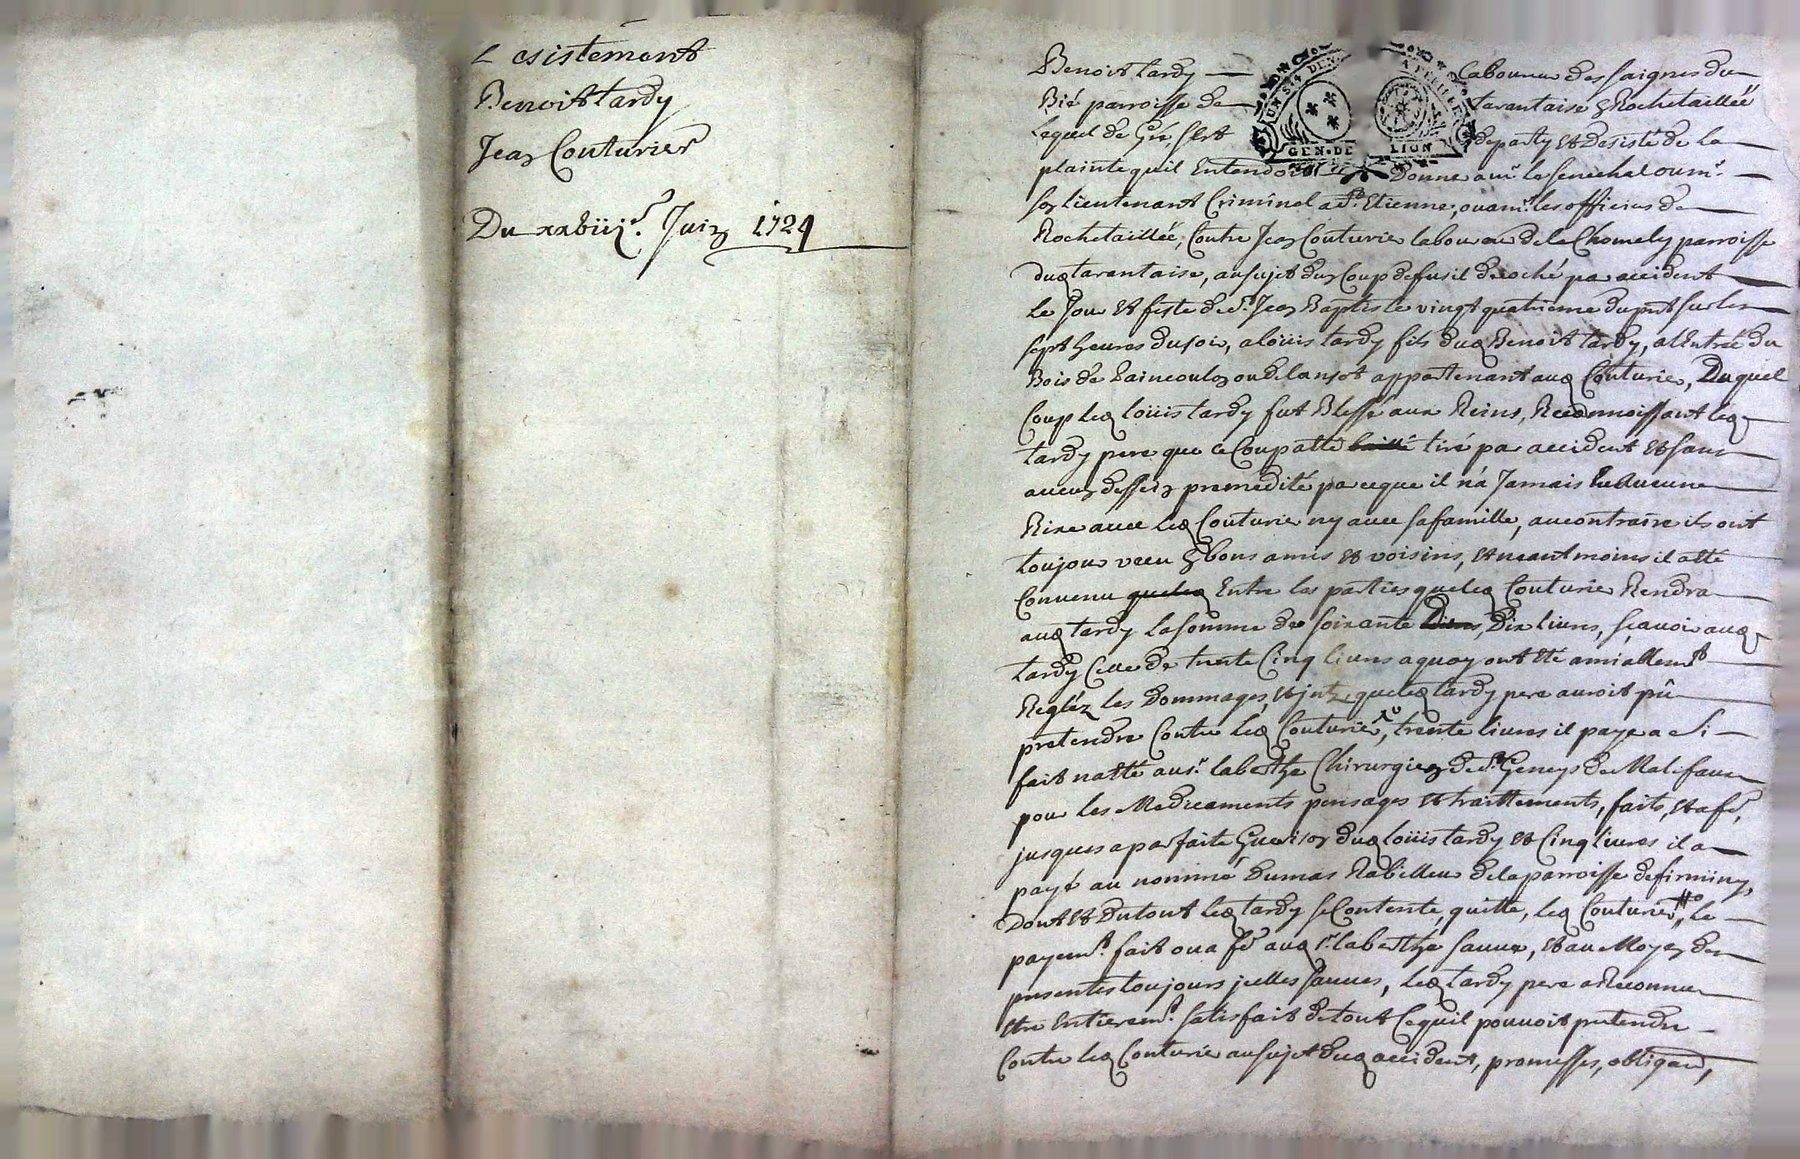 Desistement
Benoit tardy
Jean Couturier
Du xxviije. Juin 1724
UN S. 4 DEN
A FEUILLE
GEN. DE LION
Benoit tardy laboureur des saignes du
Bié parroisse de tarantaise & Rochetaillée
Lequel de Gré, s'est departy et desisté de la
plainte quil Entendoit Donner a mr. le senechal ou mr.
son lieutenant Criminel a St. Etienne, ou a mrs. les officiers de
Rochetaillée, Contre Jean Couturier laboureur de la Chomely parroisse
dud tarantaise, au sujet dun Coup de fusil decoché par accident
Le Jour et feste de St. Jean Baptiste vingt quatrieme du pnt sur les
sept heures du soir, a loüis tardy fils dud Benoit tardy, a l'Entrée du
Bois de appartenant aud Couturier, Duquel
Coup led loüis tardy fut Blessé aux Reins, Reconnoissant led
tardy pere que ce Coup a été tiré par accident et sans
aucun dessein premedité parceque il n'a Jamais heu aucune
Rixe avec led Couturier ny avec sa famille, au contraire ils ont
toujour vecu En bons amis et voisins, et neantmoins il a été
Convenu queled Entre les parties queled Couturier Rendra
aud tardy La somme de soixante Dix livres, sçavoir aud
tardy Celle de trente Cinq livres a quoy ont été amiablemt
Reglés les dommages, et jnts. queled tardy pere auroit pû
pretendre Contre led Couturier, trente livres il payera si
fait n'a été au sr. laberthe Chirurgien de St. Geneys de Malifaux
pour les Medicaments pensages et traittements, faits, et a fe.,
jusques a parfaite Guerison dud loüis tardy et Cinq livres il a
payé au nommé Dumas Rabilleur de la parroisse de firminy,
Dont et Du tout led tardy se Contente, quitte, led Couturier, Le
payemt. fait ou a fe. aud sr. laberthe sauve, et au Moyen des
presentes toujours jcelles sauves, led tardy pere a Reconnu
etre Entieremt. satisfait de tout Ce quil pouvoit pretendre
Contre led Couturier au sujet dud accident, promesses, obligaõn,